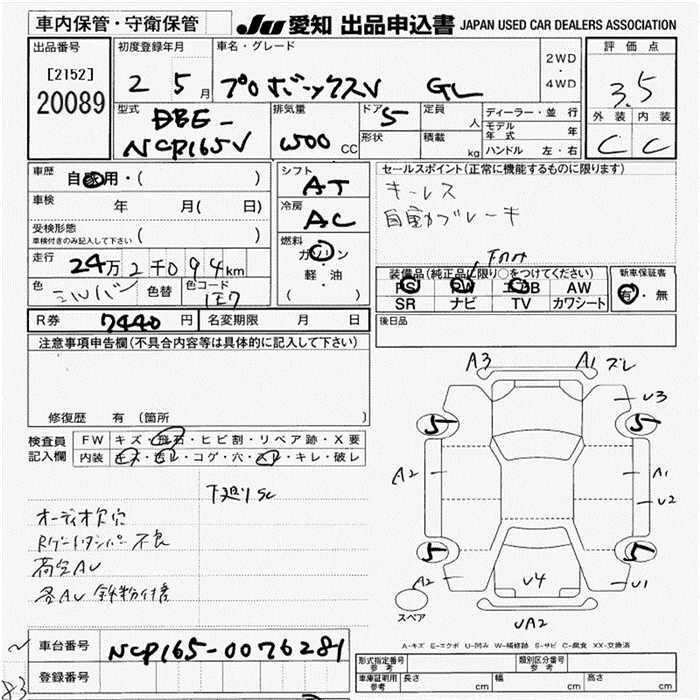 車内保管・守衛保管
JU 愛知 出品申込書 JAPAN USED CAR DEALERS ASSOCIATION
出品番号
[2152]
20089
初度登録年月
2 5月
車名・グレード
プロボックスV GL
2WD
・
4WD
評価点
3.5
外装 内装
C C
型式
DBE-
NCP165V
排気量
1500 CC
ドア 5
形状
定員 人
積載 kg
ディーラー・並行
モデル年式 年
ハンドル 左・右
車歴
自家用・( )
車検 年 月( 日)
受検形態
車検付きのみ記入して下さい ( )
走行
24万2千094km
色 シルバー 色替 色コード 1E7
シフト
AT
冷房
AC
燃料
ガソリン
軽・油
( )
セールスポイント(正常に機能するものに限ります)
キーレス
自動ブレーキ
装備品(純正品に限り○をつけてください)
PS PW エアB AW
SR ナビ TV カワシート
新車保証書
有・無
R券 7440円 名変期限 月 日
後日品
注意事項申告欄(不具合内容等は具体的に記入して下さい)
修復歴 有(箇所 )
検査員
記入欄
FW キズ・飛石・ヒビ割・リペア跡・X要
内装 キズ・汚レ・コゲ・穴・スレ・キレ・破レ
下廻りSC
オーディオ欠穴
不良
各AU 鉄粉付着
A3 A1 ズレ
U3
5 5
A2 A1
U2
5 5
A2 U4 U1
スペア
UA2
A-キズ E-エクボ U-凹み W-補修跡 S-サビ C-腐食 XX-交換済
車台番号 NCP165-0076281
登録番号
83
形式指定番号
参考
類別区分番号
参考
車庫証明用
参考
長さ cm 幅 cm 高さ cm